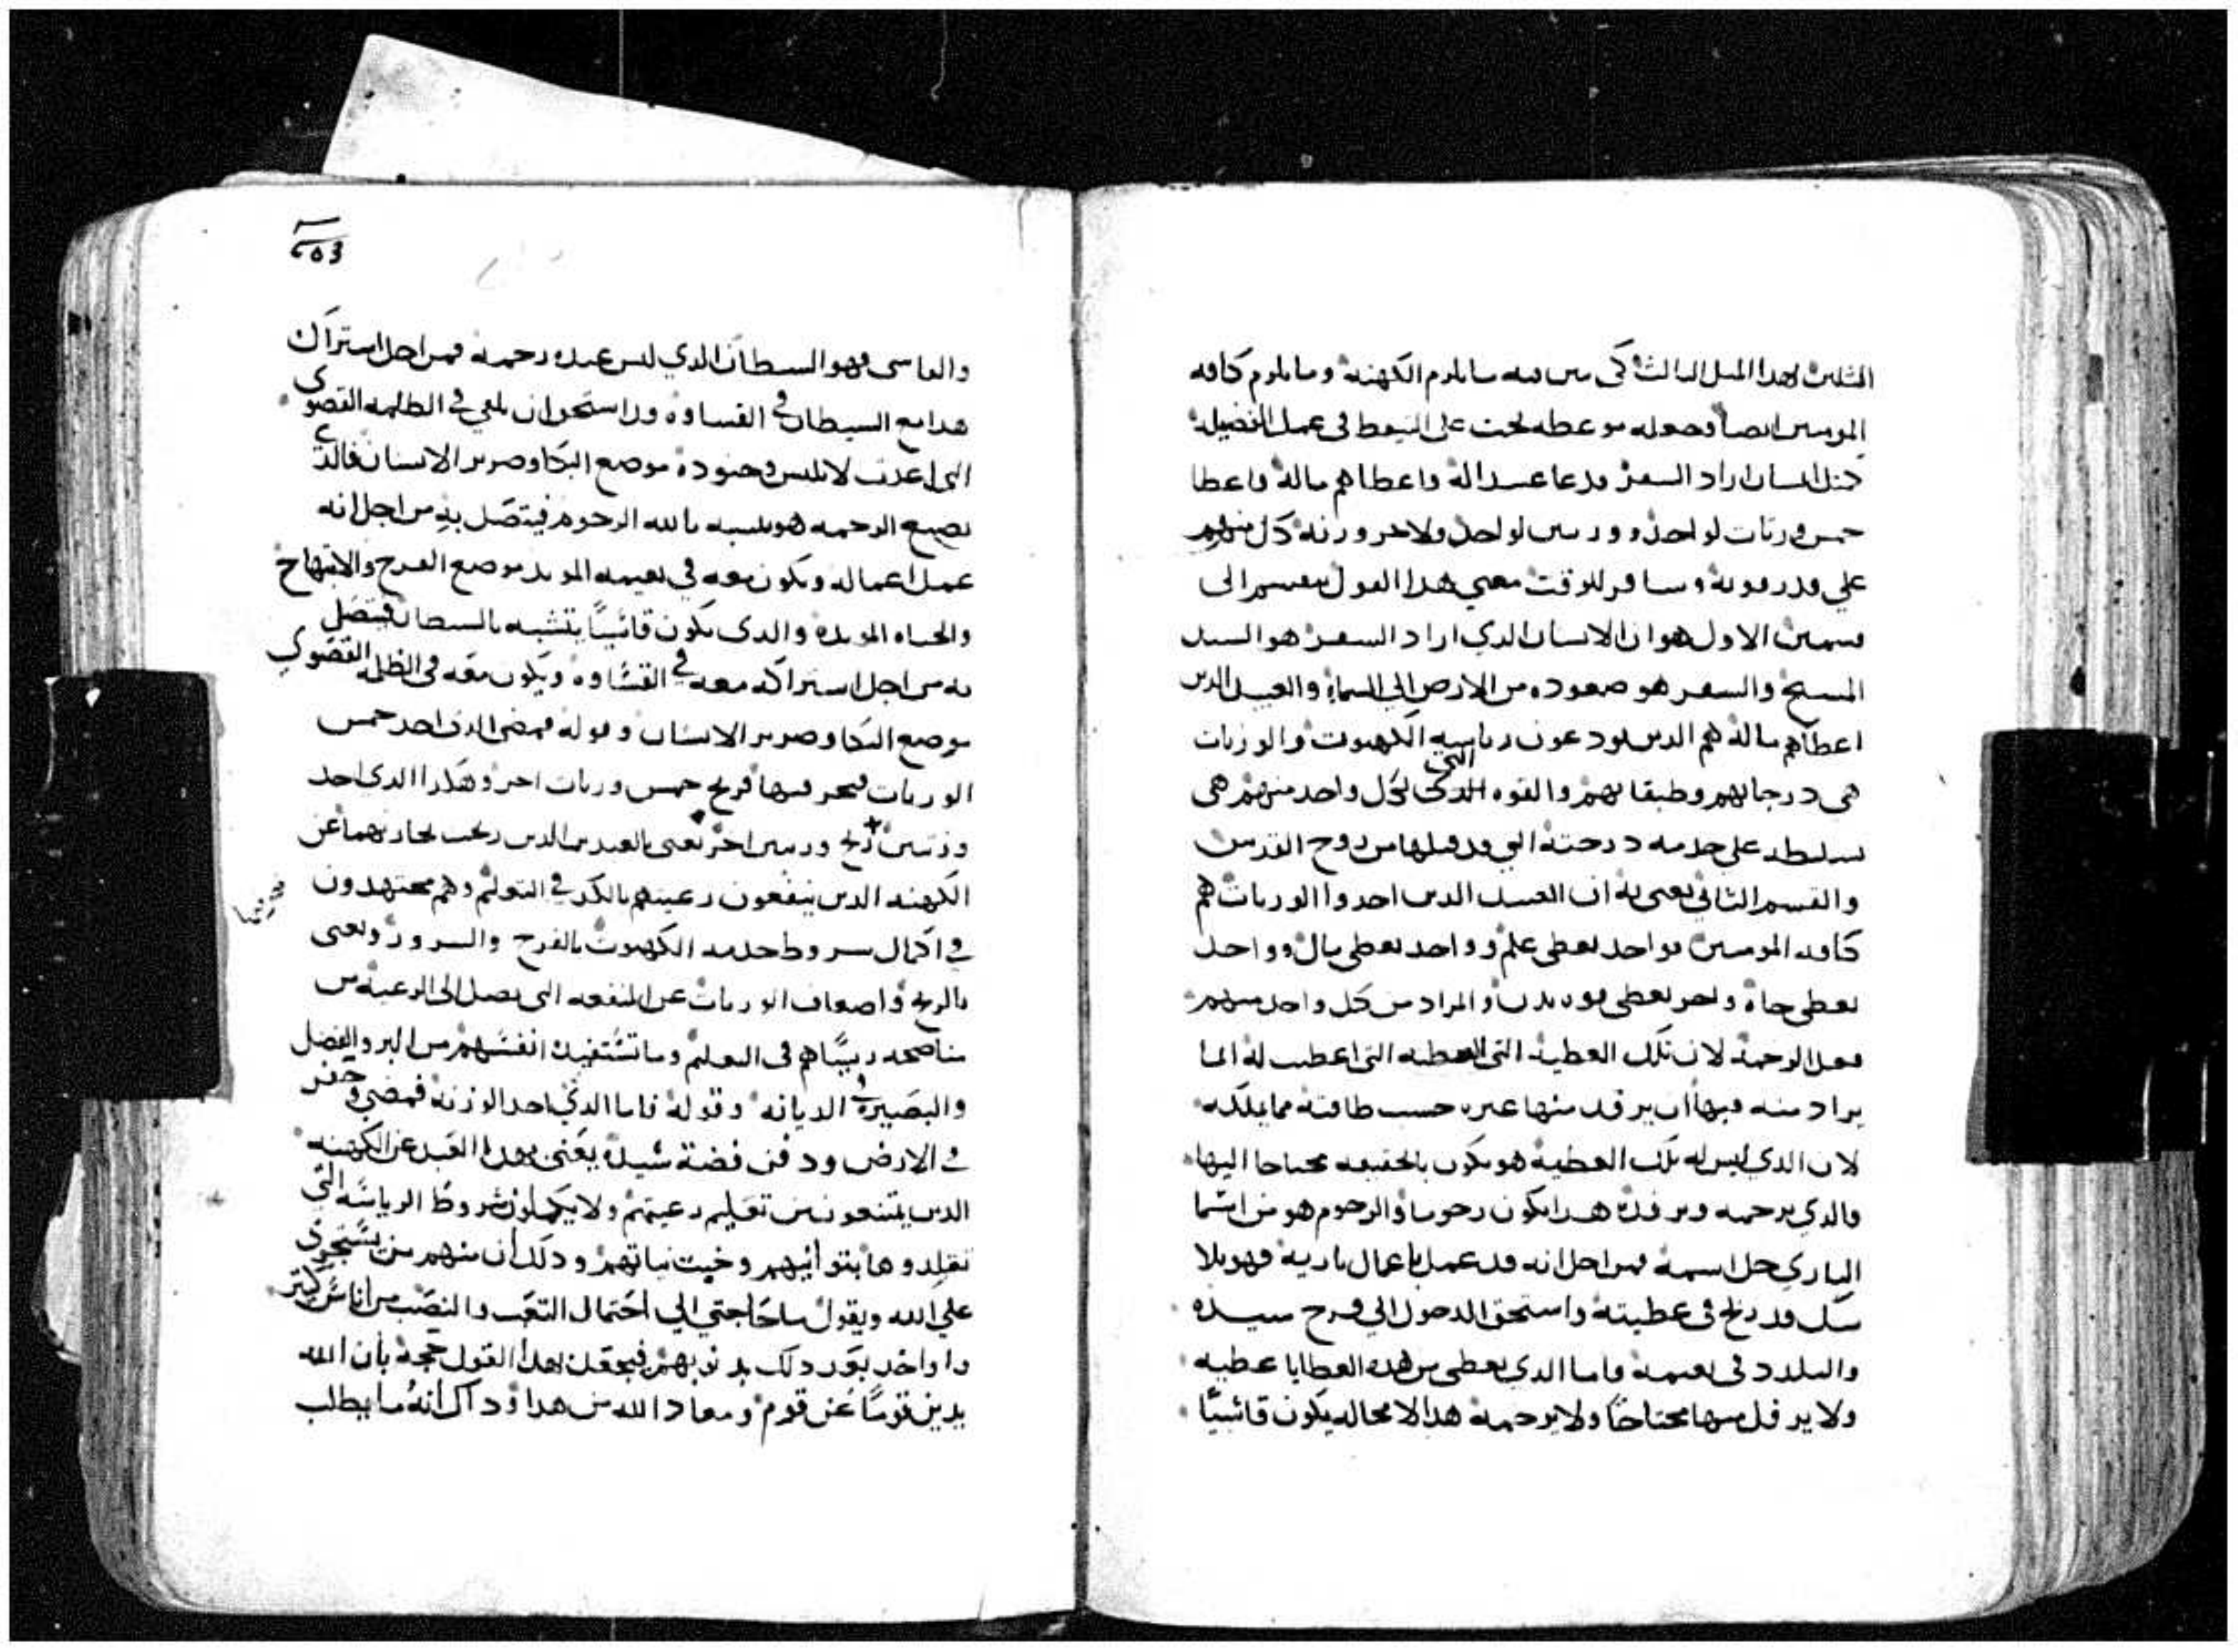 المثلين لهدا المثل الثالث كى يبين فيه ما يلزم الكهنة وما يلزم كافه
المومنين ايضا وجعله موعظه تحث على التيقظ فى عمل الفضيلة
مثل انسان اراد السفر فدعا عبيد اله واعطاهم ماله فاعطا
خمس وزنات لواحد ووزنتين لواحد ولاخر وزنه كل منهم
علي قدر قوته وسافر للوقت معني هدا القول ينقسم الى
قسمين الاول هو ان الانسان الدي اراد السفر هو السيد
المسيح والسفر هو صعوده من الارض الي السماء والعبيد الدين
اعطاهم ماله هم الدين يودعون رياسة الكهنوت والوزنات
هى درجاتهم وطبقاتهم والقوه التي لكل واحد منهم هى
سلطه على خدمه درجته التي قد قبلها من روح القدس
والقسم الثاني يعنى به ان العبيد الدين اخدوا الوزنات هم
كافه المومنين فواحد يعطى علم وواحد يعطى مال وواحد
يعطى جاه واخر يعطى قوه بدن والمراد من كل واحد منهم
فعل الرحمة لان تلك العطية التى اعطيت له انما
يراد منه فيها ان يرفد منها غيره حسب طاقته مما يملكه
لان الدي ليس له تلك العطية هو يكون بالحقيقه محتاجا اليها
فالدي يرحمه ويرفده هدا يكون رحوما والرحوم هو من اسما
الباري جل اسمه فمن اجل انه قد عمل باعمال باريه فهو بلا
شك قد ربح فى عطيته واستحق الدخول الي فرح سيده
والتلدد فى نعيمه واما الدي يعطى من هده العطايا عطيه
ولا يرفد منها محتاجا ولا يرحمه هدا لا محاله يكون قاسيا
503
والقاسى فهو السيطان الدي ليس عنده رحمه فمن اجل استراك
هدا مع السيطان في القساوه قد استحق ان يلقي في الظلمه القصوى
التى اعدت لابليس وجنوده موضع البكا وصرير الاسنان فالدي
يصنع الرحمه هو يتشبه بالله الرحوم فيتصل به من اجل انه
عمل اعماله ويكون معه في نعيمه الموبد موضع الفرح والابتهاج
والحياه الموبده والدى يكون قاسيا يتشبه بالسيطان فيتصل
به من اجل استراكه معه في القساوه ويكون معه فى الظلمه القصوي
موضع البكا وصرير الاسنان وقوله فمضى الدى اخد خمس
الوزنات فتجر فيها فربح خمس وزنات اخر وهكدا الدى اخد
وزنتين ربح وزنتين اخر يعنى بالعبدين الدين ربحت تجارتهما عن
الكهنه الدين ينفعون رعيتهم بالكد في التعليم وهم مجتهدون
في اكمال شروط خدمة الكهنوت بالفرح والسرور ويعنى
بالربح واضعاف الوزنات عن المنفعه التى تصل الى الرعية من
مناصحه رييساهم فى التعليم وما تستفيده انفسهم من البر والفضل
والبصيره في الديانه وقوله فاما الدي اخد الوزنه فمضي وحفر
في الارض ودفن فضة سيده يعنى بهدا العبد عن الكهنه
الدين يمتنعون من تعليم رعيتهم ولا يكملون شروط الرياسه التي
تقلدوها بتوانيهم وخبث نياتهم ودلك ان منهم من يستجري
علي الله ويقول ما حاجتي الي احتمال التعب والنصب من اناس كتير
واواخد بعد دلك بدنوبهم فيجعل هدا القول حجة بان الله
يدين قوما عن قوم ومعاد الله من هدا وداك انه ما يطلب